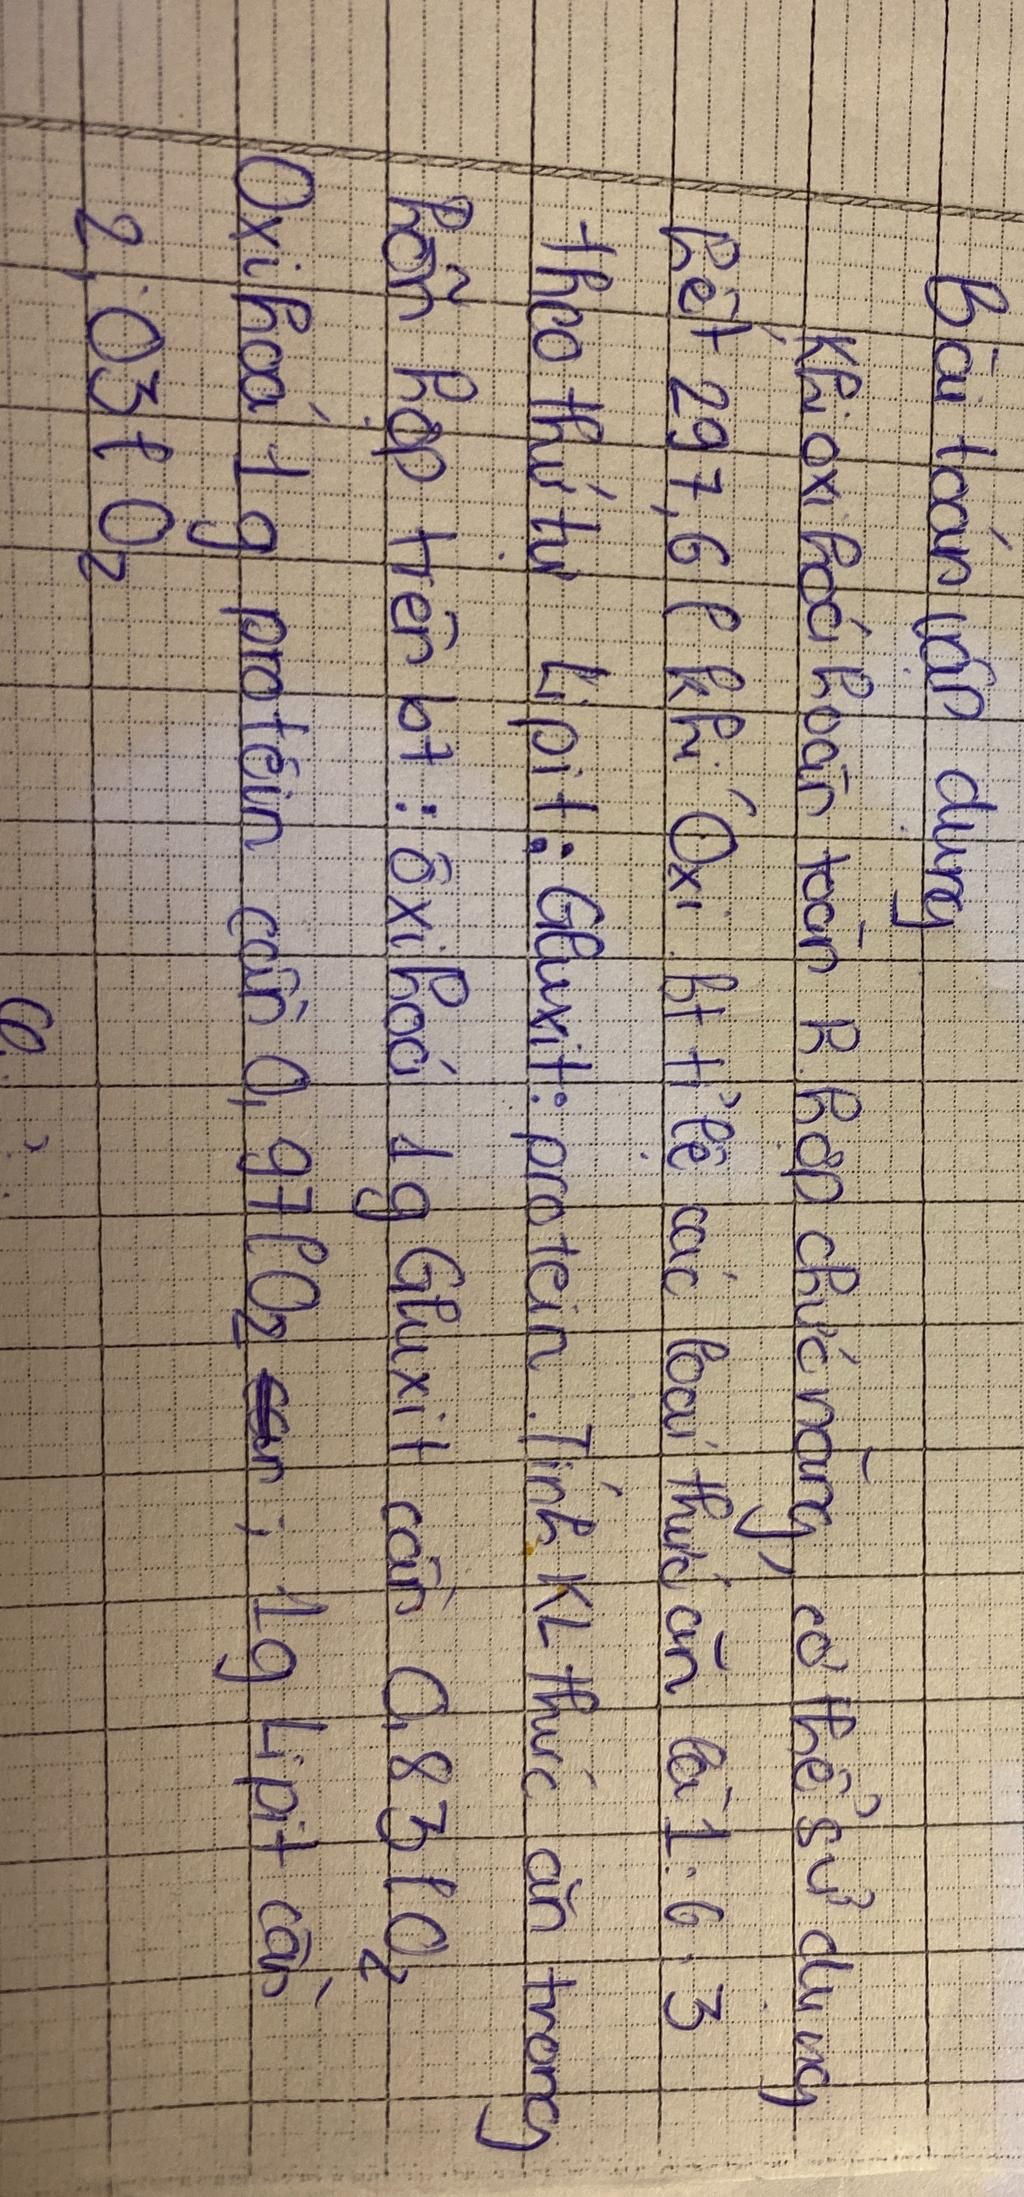 Bài toán vận dụng
Khi oxi hoá hoàn toàn h. hợp chức năng, cơ thể sử dụng
hết 297,6 l khí Oxi. bt tỉ lệ các loại thức ăn là 1 : 6 : 3
theo thứ tự Lipit : Gluxit : protein. Tính KL thức ăn trong
hỗn hợp trên bt : ôxi hoá 1 g Gluxit cần 0,83 l O2
Oxi hoá 1 g protein cần 0,97 l O2 ; 1g Lipit cần
2,03 l O2